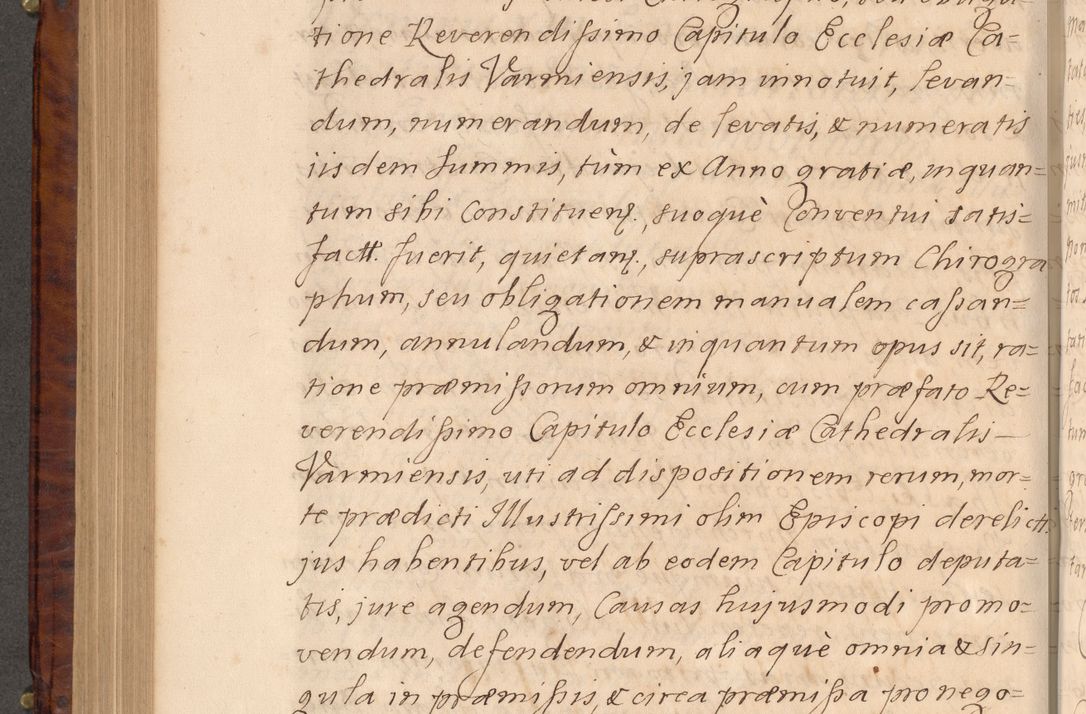 tione Reverendissimo Capitulo Ecclesiæ Ca=
thedralis Varmiensis, jam innotuit, levan=
dum, numerandum, de levatis, & numeratis
iisdem summis, tùm ex Anno gratiæ, inquan=
tum sibi Constituenꝶ., suoquè Conventui satis=
factt. fuerit, quietanꝶ., suprascriptum Chirogra
phum, seu obligationem manualem cassan=
dum, annulandum, & inquantum opus sit, ra=
tione præmissorum omnium, cum præfato Re=
verendissimo Capitulo Ecclesiæ Cathedralis
Varmiensis, uti ad dispositionem rerum, mor=
te prædicti Illustrissimi olim Episcopi derelictt.
jus habentibus, vel ab eodem Capitulo deputa=
tis, jure agendum, Causas hujusmodi promo=
vendum, defendendum, aliaquè omnia & sin=
gula in præmissis, & circa præmissa pro nego=